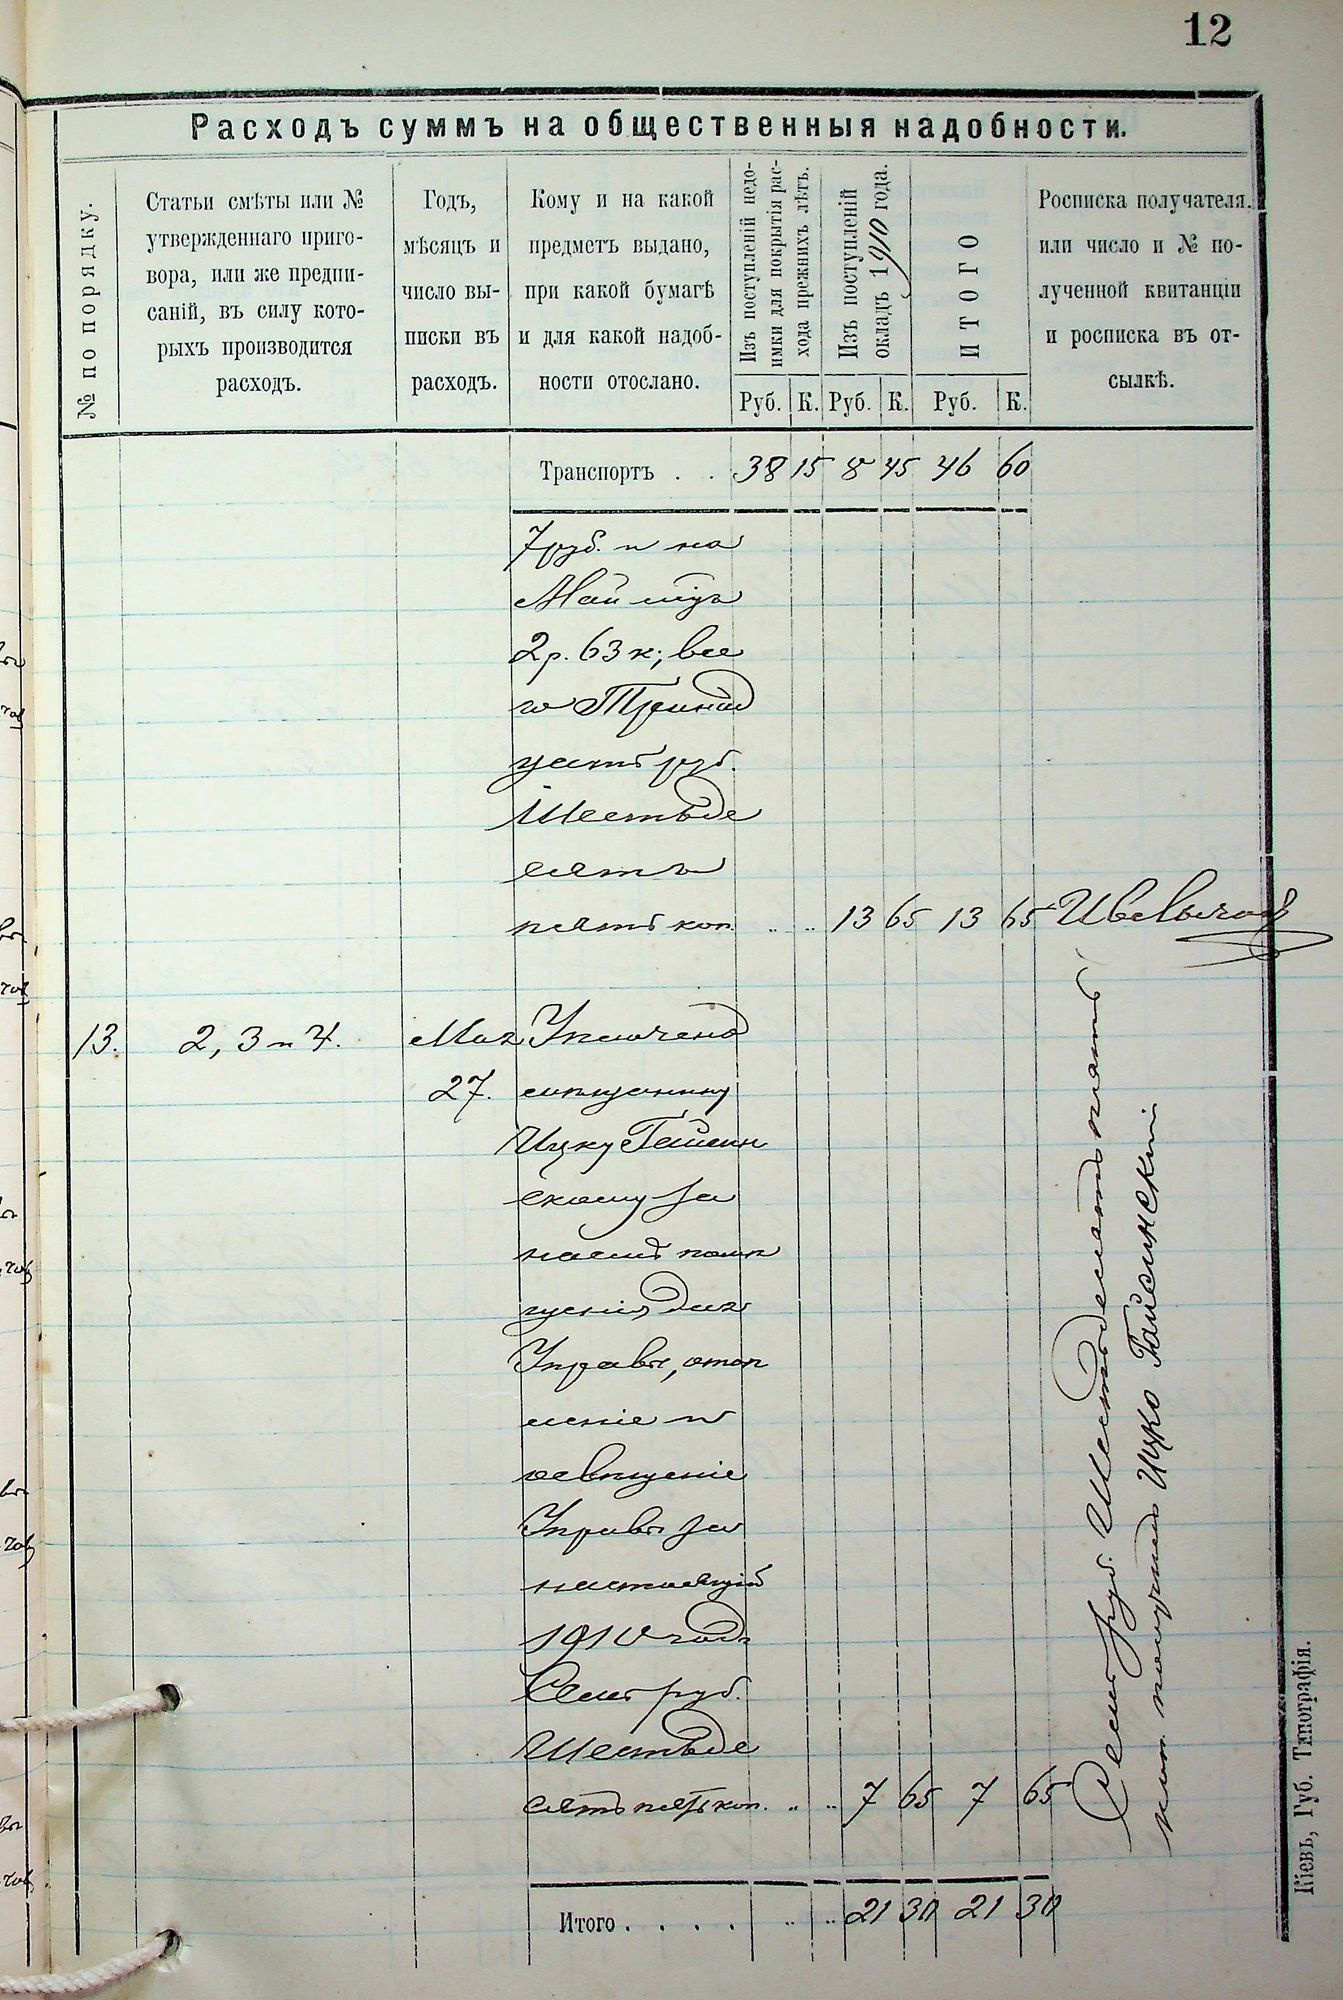 12
Расходъ суммъ на общественныя надобности.
№ по порядку.
Статьи смѣты или №
утвержденнаго приго-
вора, или же предпи-
саній, въ силу кото-
рыхъ производится
расходъ.
Годъ,
мѣсяцъ и
число вы-
писки въ
расходъ.
Кому и на какой
предметъ выдано,
при какой бумагѣ
и для какой надоб-
ности отослано.
Изъ поступленій недо-
имки для покрытія рас-
хода прежнихъ лѣтъ.
Изъ поступленій
окладъ 1910 года.
ИТОГО
Росписка получателя,
или число и № по-
лученной квитанціи
и росписка въ от-
сылкѣ.
Руб. К. Руб. К. Руб. К.
Транспортъ . . 38 15 8 45 46 60
7 руб. и на
Май мѣц
2 р. 63 к; все
го Тринад
цать руб.
Шестьде
сятъ
пять коп. 13 65 13 65
13. 2, 3 и 4. Мая Уплочено
27. мѣщанину
Ицку Гайсин
скому за
наемъ помѣ
щенія для
Управы, отоп
леніе и
освѣщеніе
Управы за
настоящій
1910 годъ
Семь руб.
Шестьде
сятъ пять коп. 7 65 7 65
Семь руб. Шестьдесятъ пять
коп. получилъ Ицко Гайсинскій
Итого . . . . 21 30 21 30
Кіевъ, Губ. Типографія.